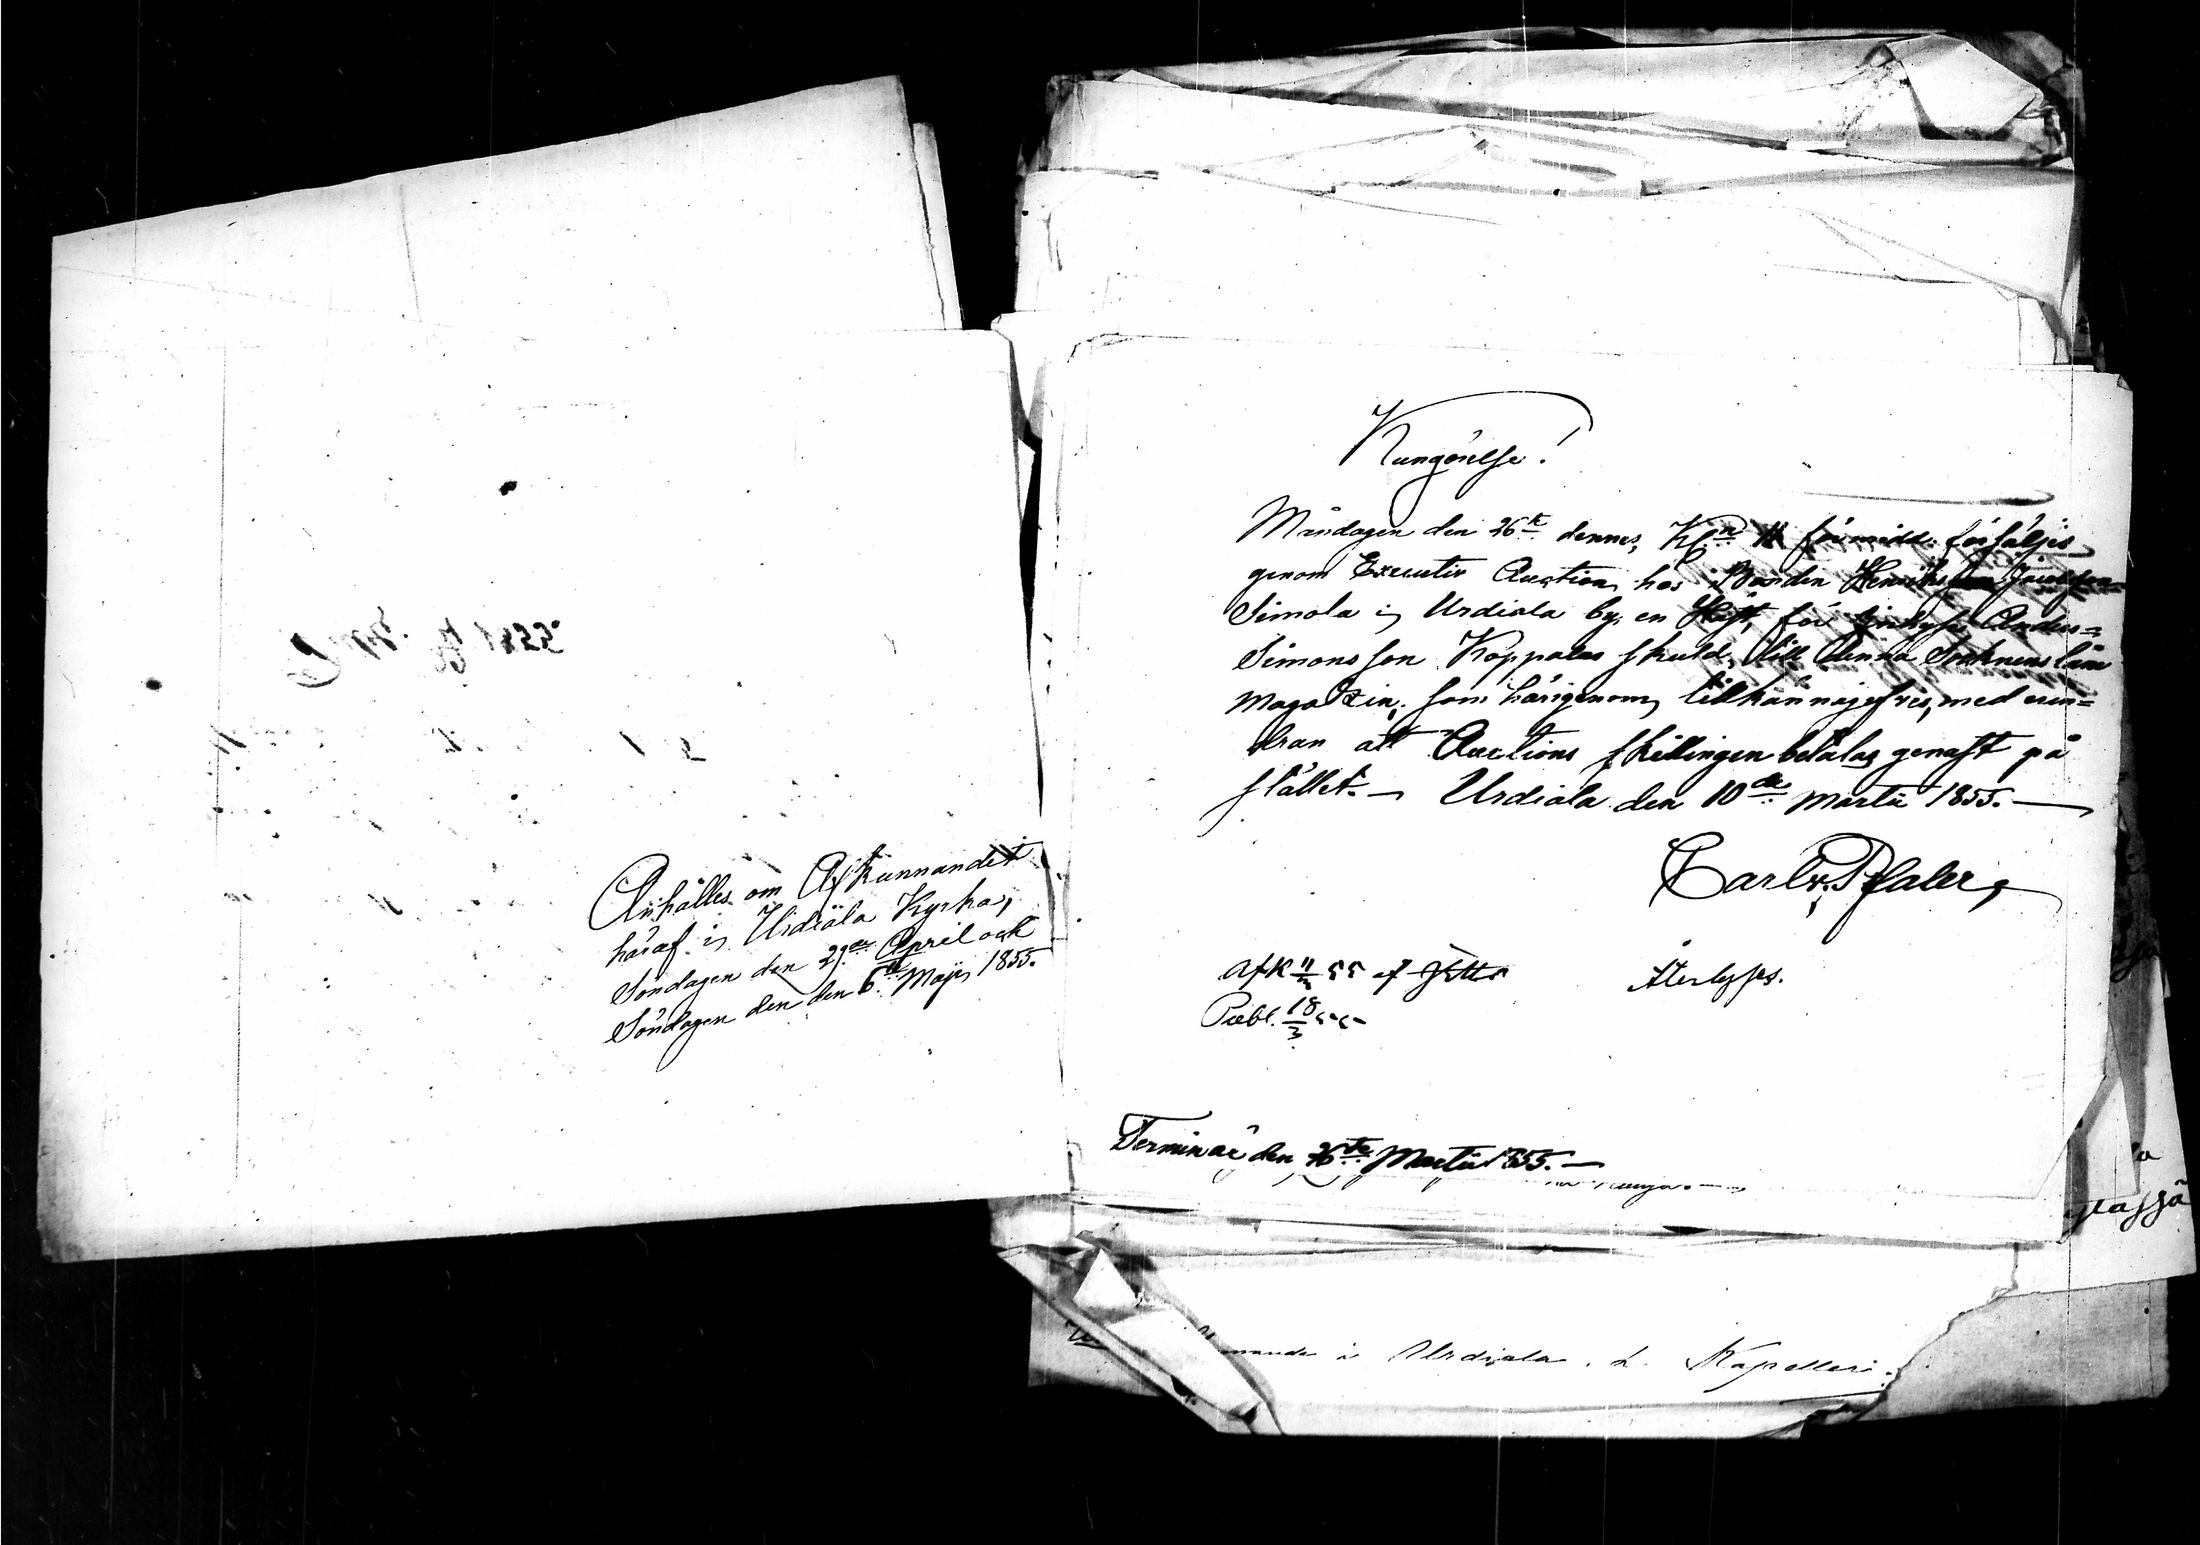 Anhålles om Afkunnandet
häraf i Urdiala Kyrka,
Söndagen den 29de April och
Söndagen den den 6te Maji 1855.
Kungörelse!
Måndagen den 26te dennes, Kln 11 förmidd: försäljes
genom Executiv Auction hos Bonden Henrik Jacobsson
Simola i Urdiala by, en Häst, för Anders=
Simonsson Koppalas skuld, till denna Socknens låne
magazin; som härigenom tillkännagifves, med erin=
dran att Auctions skillingen betalas genast på
stället. — Urdiala den 10de Martii 1855. —
Carl v. Pfaler,
Afk 11/3 55 af
Återlyses.
Publ. 18/3 55
Terminar den 26te Martii 1855. —
i Urdiala. Kapelleri